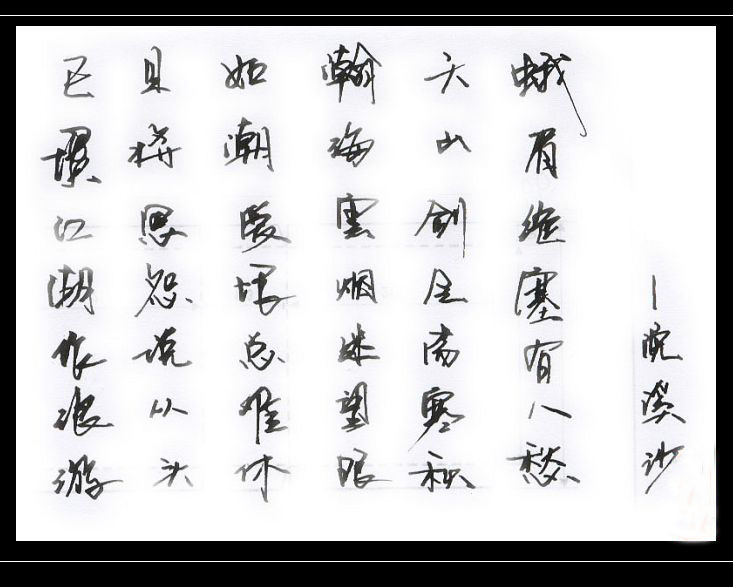 —浣溪沙
蛾眉塞有人愁
天山剑荡寒秋
瀚海雲烟迷望眼
如潮爱恨总难休
且将恩怨说从头
已惯江湖作浪游